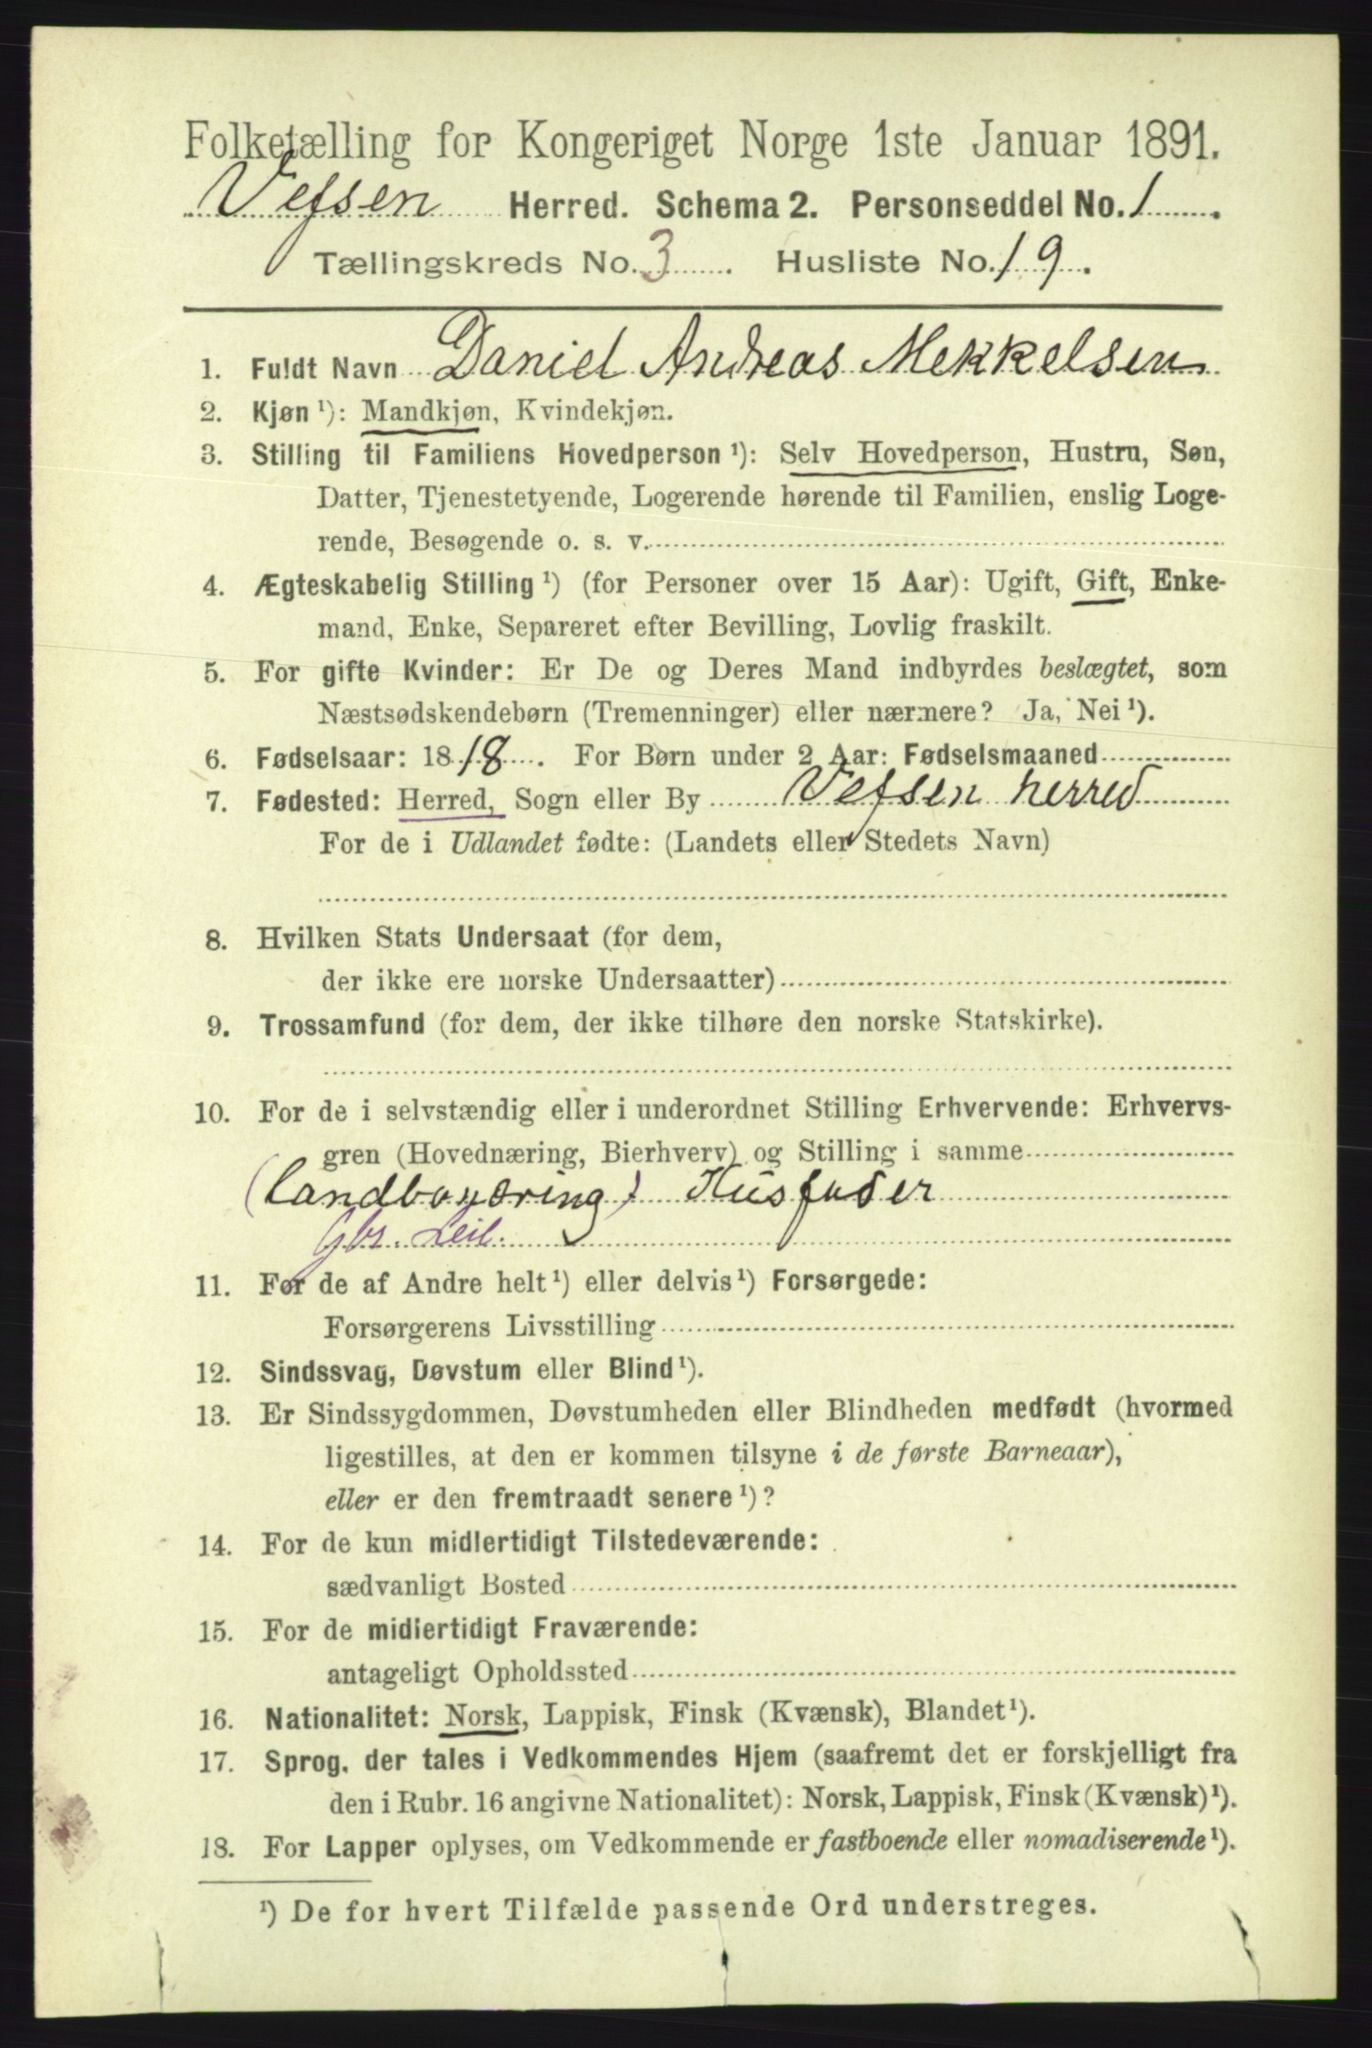 Folketælling for Kongeriget Norge 1ste Januar 1891.
Vefsen Herred. Schema 2. Personseddel No. 1.
Tællingskreds No. 3. Husliste No. 19.
1. Fuldt Navn Daniel Andreas Mekkelsen
2. Kjøn ¹): Mandkjøn, Kvindekjøn.
3. Stilling til Familiens Hovedperson ¹): Selv Hovedperson, Hustru, Søn,
Datter, Tjenestetyende, Logerende hørende til Familien, enslig Loge-
rende, Besøgende o. s. v.
4. Ægteskabelig Stilling ¹) (for Personer over 15 Aar): Ugift, Gift, Enke-
mand, Enke, Separeret efter Bevilling, Lovlig fraskilt.
5. For gifte Kvinder: Er De og Deres Mand indbyrdes beslægtet, som
Næstsødskendebørn (Tremenninger) eller nærmere? Ja, Nei ¹).
6. Fødselsaar: 1818. For Børn under 2 Aar: Fødselsmaaned
7. Fødested: Herred, Sogn eller By Vefsen herred
For de i Udlandet fødte: (Landets eller Stedets Navn)
8. Hvilken Stats Undersaat (for dem,
der ikke ere norske Undersaatter)
9. Trossamfund (for dem, der ikke tilhøre den norske Statskirke).
10. For de i selvstændig eller i underordnet Stilling Erhvervende: Erhvervs-
gren (Hovednæring, Bierhverv) og Stilling i samme
(Landbonæring) Husfader
Gbr. Leil.
11. For de af Andre helt ¹) eller delvis ¹) Forsørgede:
Forsørgerens Livsstilling
12. Sindssvag, Døvstum eller Blind ¹).
13. Er Sindssygdommen, Døvstumheden eller Blindheden medfødt (hvormed
ligestilles, at den er kommen tilsyne i de første Barneaar),
eller er den fremtraadt senere ¹)?
14. For de kun midlertidigt Tilstedeværende:
sædvanligt Bosted
15. For de midlertidigt Fraværende:
antageligt Opholdssted
16. Nationalitet: Norsk, Lappisk, Finsk (Kvænsk), Blandet ¹).
17. Sprog, der tales i Vedkommendes Hjem (saafremt det er forskjelligt fra
den i Rubr. 16 angivne Nationalitet): Norsk, Lappisk, Finsk (Kvænsk) ¹).
18. For Lapper oplyses, om Vedkommende er fastboende eller nomadiserende ¹).
¹) De for hvert Tilfælde passende Ord understreges.